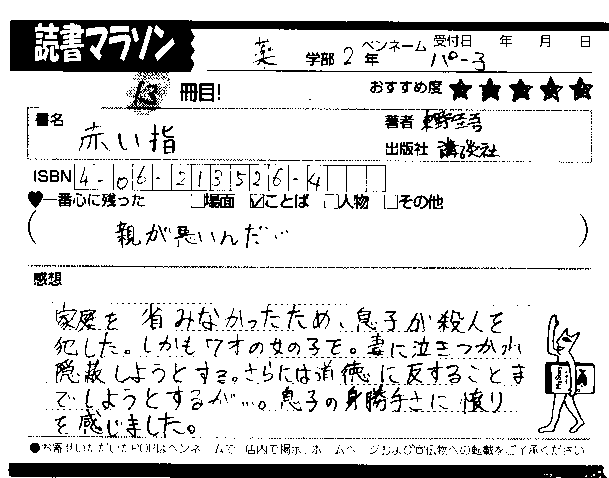 読書マラソン
薬 学部 2 年 ペンネーム パー子 受付日 年 月 日
13 冊目! おすすめ度 ★★★★★
書名 赤い指
著者 東野圭吾
出版社 講談社
ISBN 4-06-213526-4
♥一番心に残った □場面 ☑ことば □人物 □その他
( 親が悪いんだ… )
感想
家庭を省みなかったため、息子が殺人を
犯した。しかも7才の女の子を。妻に泣きつかれ
隠蔽しようとする。さらには道徳に反することま
でしようとするが…。息子の身勝手さに憤り
を感じました。
●お寄せいただいたPOPはペンネームで店内で掲示、ホームページおよび宣伝物への転載をご了承ください